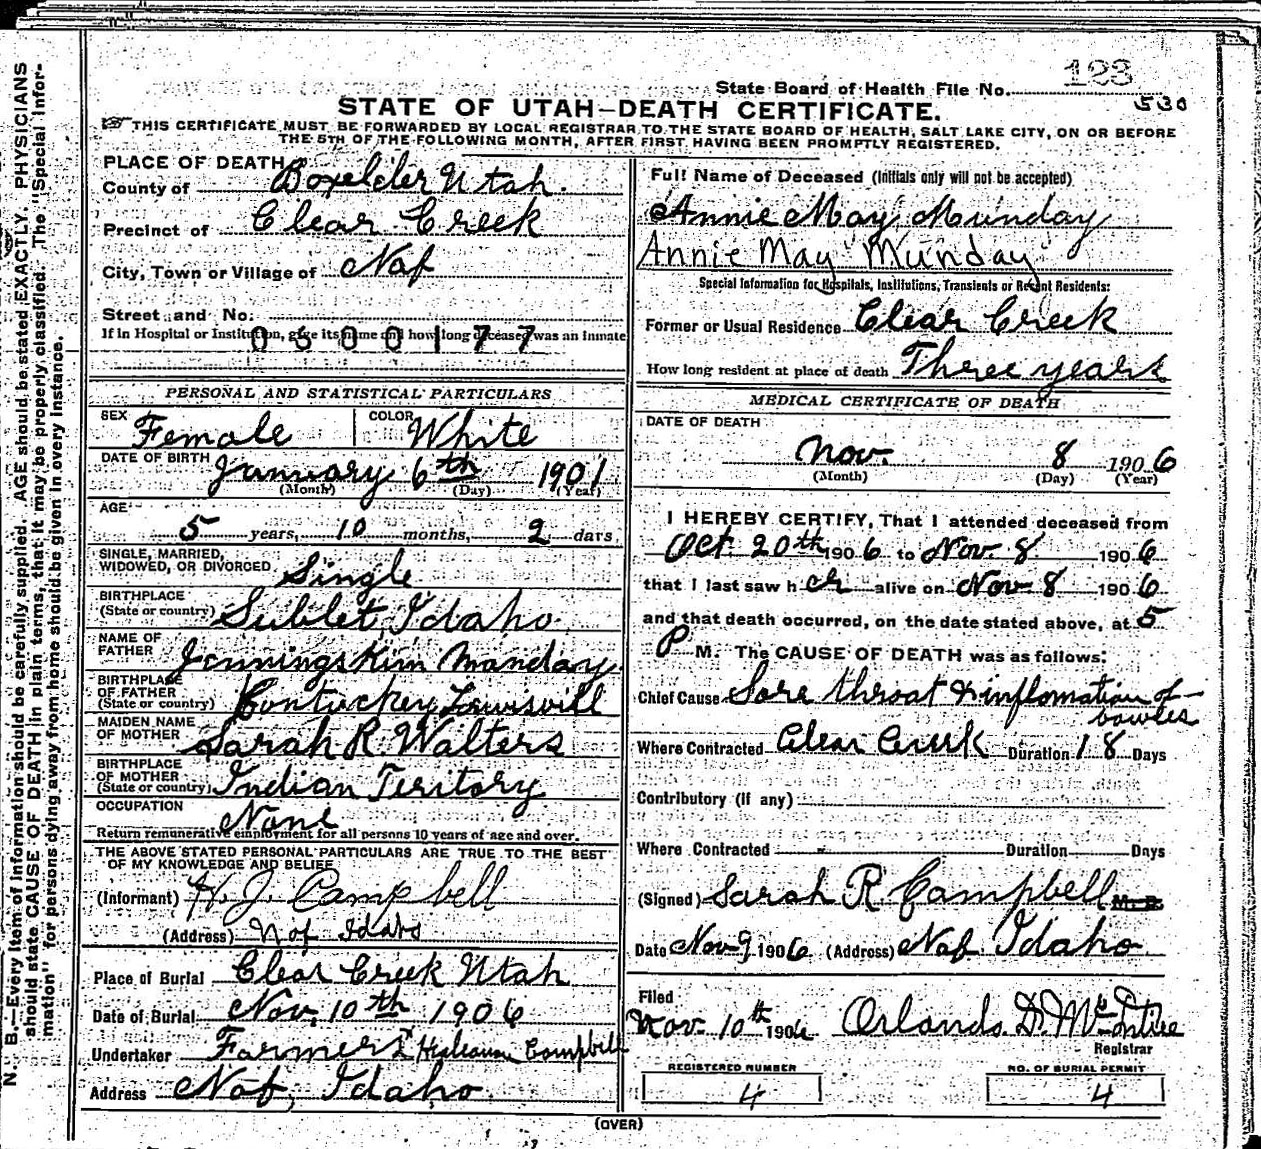 123
State Board of Health File No.
530
STATE OF UTAH—DEATH CERTIFICATE.
THIS CERTIFICATE MUST BE FORWARDED BY LOCAL REGISTRAR TO THE STATE BOARD OF HEALTH, SALT LAKE CITY, ON OR BEFORE
THE 5TH OF THE FOLLOWING MONTH, AFTER FIRST HAVING BEEN PROMPTLY REGISTERED.
PLACE OF DEATH
County of Boxelder Utah.
Precinct of Clear Creek
City, Town or Village of Naf
Street and No.
If in Hospital or Institution, give its name and how long deceased was an inmate
0300177
PERSONAL AND STATISTICAL PARTICULARS
SEX Female COLOR White
DATE OF BIRTH January 6th 1901
(Month) (Day) (Year)
AGE
5 years, 10 months, 2 days
SINGLE, MARRIED,
WIDOWED, OR DIVORCED Single
BIRTHPLACE
(State or country) Sublet, Idaho
NAME OF
FATHER Jennings Kim Manday
BIRTHPLACE
OF FATHER
(State or country) Contuckey Louisvill
MAIDEN NAME
OF MOTHER Sarah R Walters
BIRTHPLACE
OF MOTHER
(State or country) Indian Teritory
OCCUPATION None
Return remunerative employment for all persons 10 years of age and over.
THE ABOVE STATED PERSONAL PARTICULARS ARE TRUE TO THE BEST
OF MY KNOWLEDGE AND BELIEF
(Informant) H. J. Campbell
(Address) Naf Idaho
Place of Burial Clear Creek Utah
Date of Burial Nov. 10th 1906
Undertaker Farmer Campbell
Address Naf, Idaho
Full Name of Deceased (Initials only will not be accepted)
Annie May Munday
Annie May Munday
Special Information for Hospitals, Institutions, Transients or Recent Residents:
Former or Usual Residence Clear Creek
How long resident at place of death Three years
MEDICAL CERTIFICATE OF DEATH
DATE OF DEATH
Nov. 8 1906
(Month) (Day) (Year)
I HEREBY CERTIFY, That I attended deceased from
Oct. 20th 1906 to Nov. 8 1906
that I last saw h er alive on Nov 8 1906
and that death occurred, on the date stated above, at 5
P M. The CAUSE OF DEATH was as follows:
Chief Cause Sore throat & inflomation of
bowles
Where Contracted Clear Creek Duration 18 Days
Contributory (if any)
Where Contracted Duration Days
(Signed) Sarah R Campbell M. D.
Date Nov 9 1906 (Address) Naf Idaho
Filed
Nov. 10th 1906 Orlando D. McIntire
Registrar
REGISTERED NUMBER
4
NO. OF BURIAL PERMIT
4
(OVER)
N. B.—Every item of information should be carefully supplied. AGE should be stated EXACTLY. PHYSICIANS
should state CAUSE OF DEATH in plain terms, that it may be properly classified. The "Special Infor-
mation" for persons dying away from home should be given in every instance.